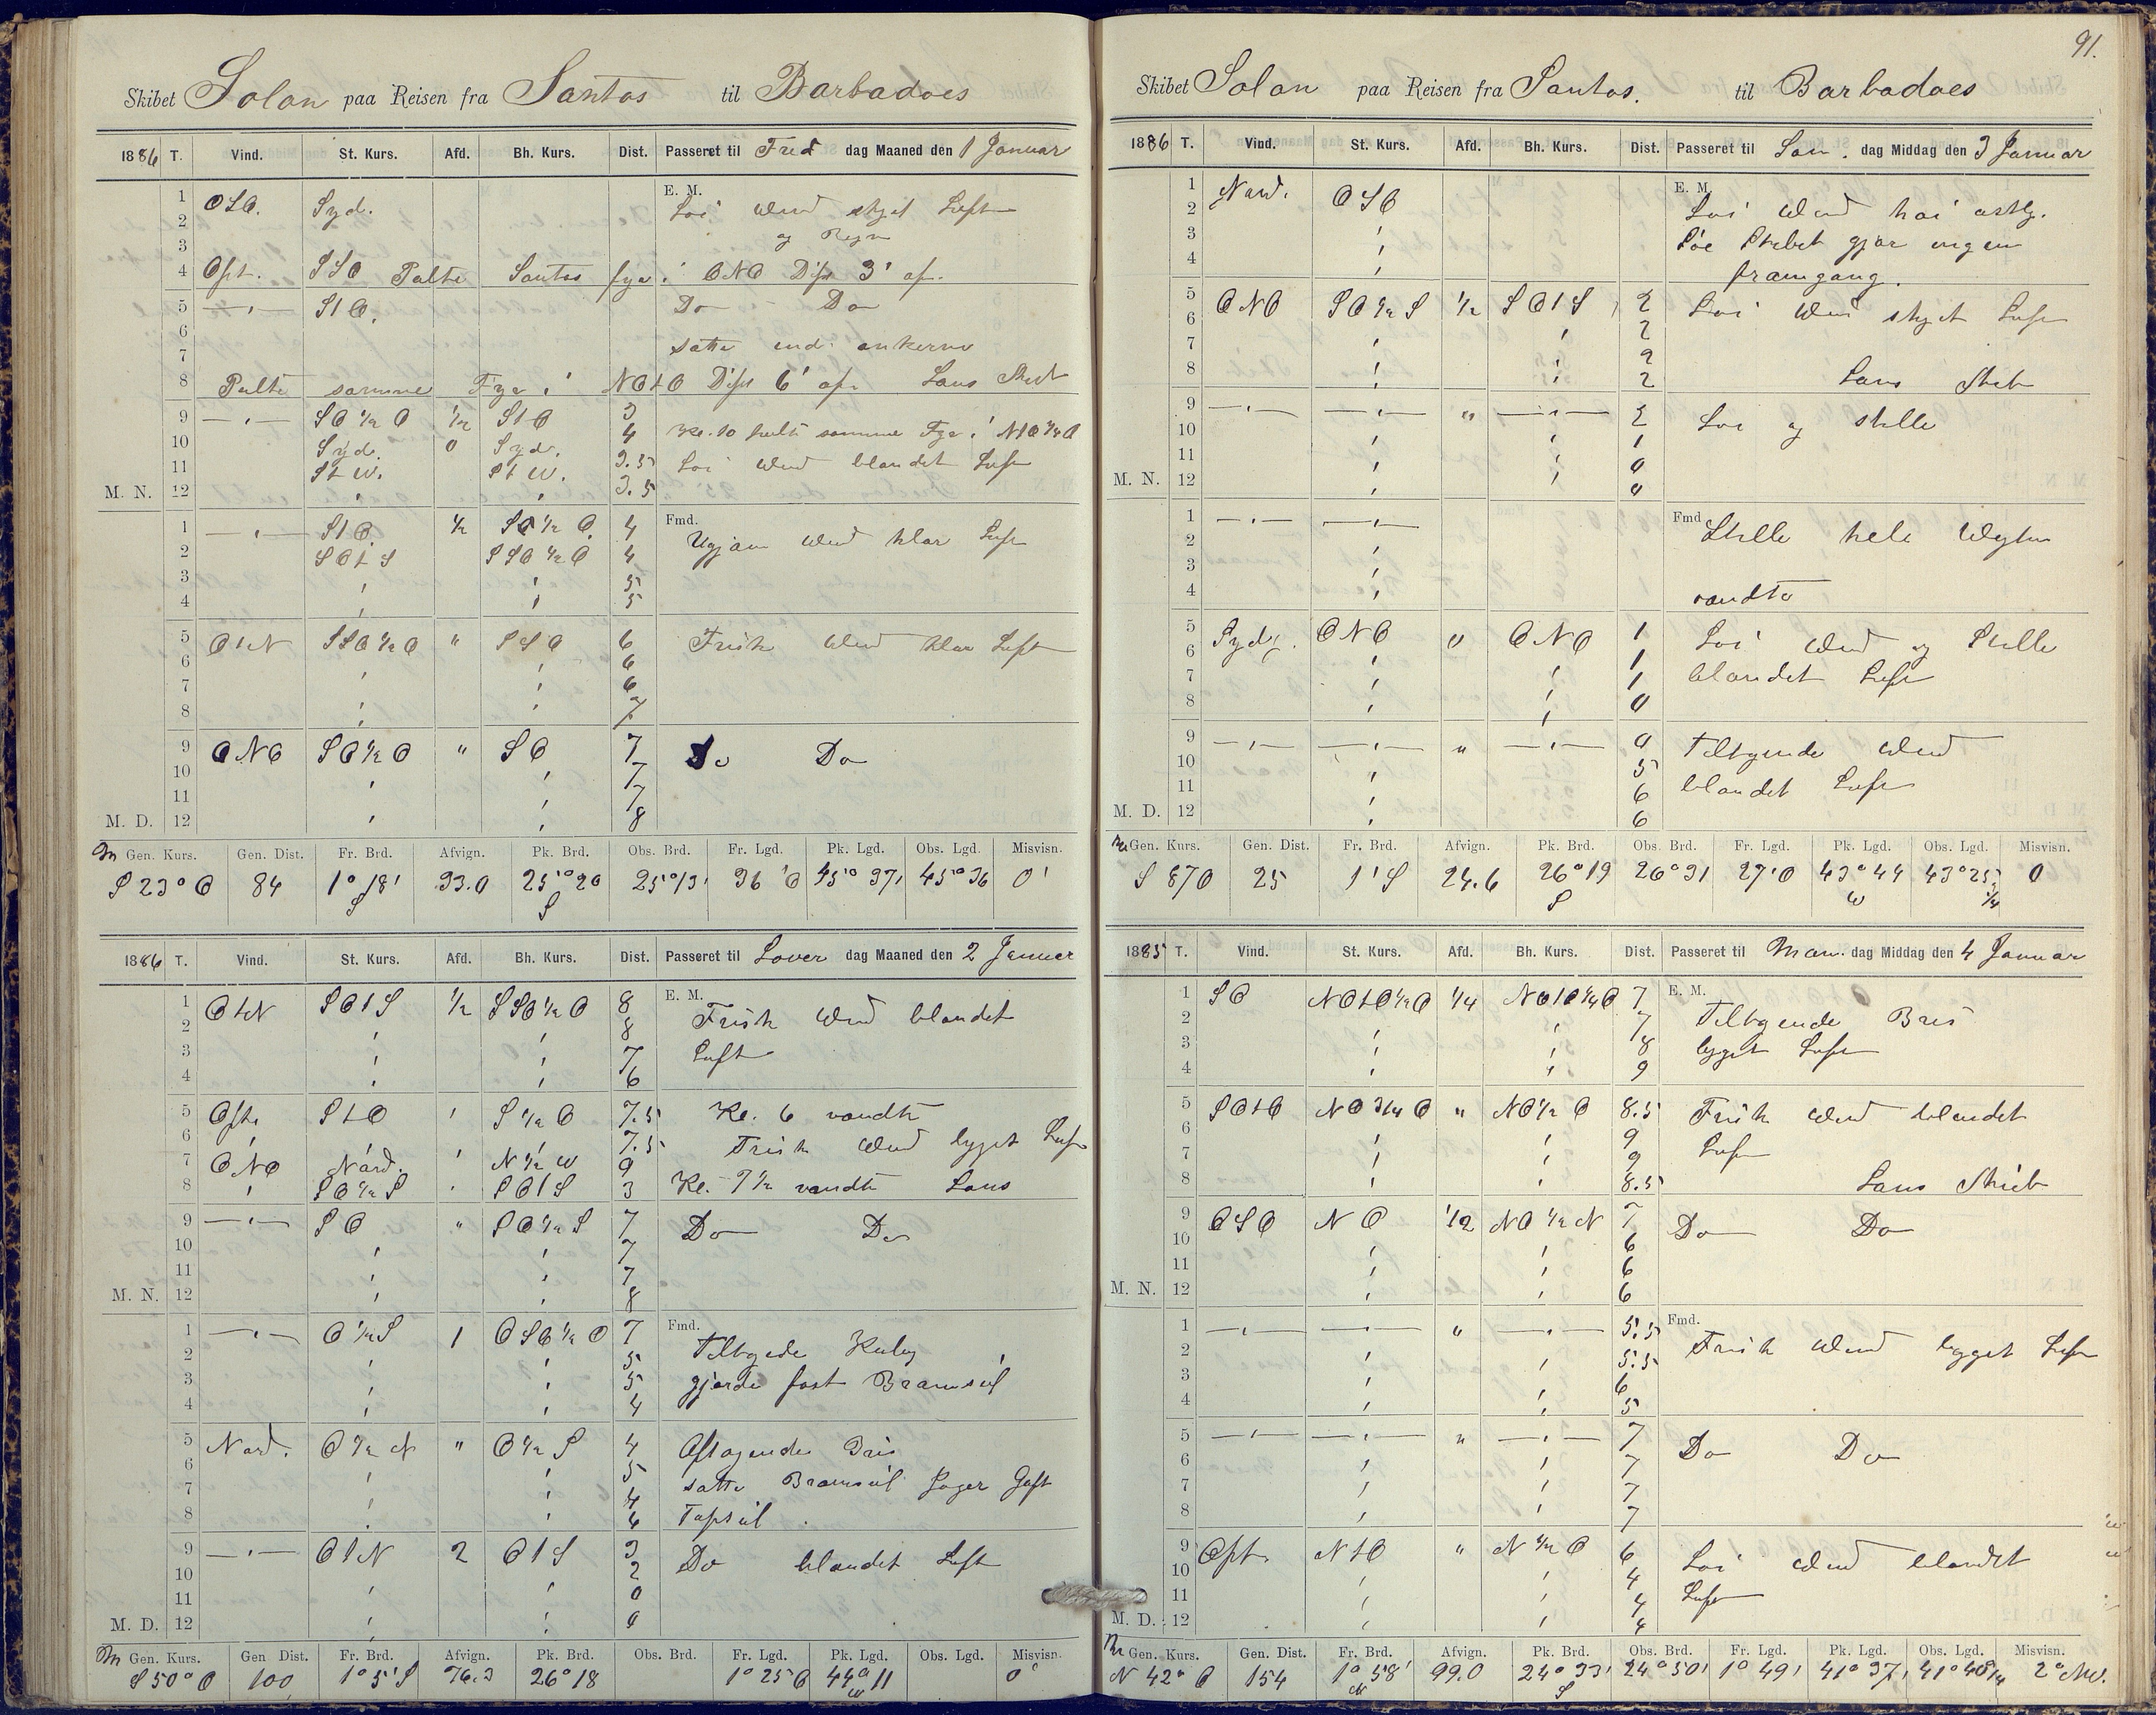 Skibet Solon paa Reisen fra Santos til Barbadoes
1886 T. Vind. St. Kurs. Afd. Bh. Kurs. Dist. Passeret til Fred dag Maaned den 1 Januar
E. M.
1 OSO. Syd. Löi Wind skyet Luft
2 og Regn
3
4 Ost. SSO Palte Santos fyr i ONO Dist 3' af.
5 —"— StO. Do — Do
6 satte ind ankerne
7
8 Palte samme Fyr i NOtO Dist 6' af. Lans Skib
9 —"— SO ½ O ½ StO 3
10 Syd. 0 Syd. 4 Kl. 10 pelte samme Fyr i NtO ¾ O
11 StW. StW. 3.5 Löi Wind blandet Luft
M. N. 12 " " 3.5
Fmd.
1 —"— StO. ½ SO ½ O. 4 Ugjævn Wind klar Luft
2 SOtS SSO ½ O 4
3 " " 5
4 " " 5
5 OtN SSO ½ O " SSO 6 Frisk Wind klar Luft
6 " " 6
7 " " 6
8 " " 7
9 ONO SO ½ O " SO 7 Do Do
10 " " 7
11 " " 7
M. D. 12 " " 8
m Gen. Kurs. Gen. Dist. Fr. Brd. Afvign. Pk. Brd. Obs. Brd. Fr. Lgd. Pk. Lgd. Obs. Lgd. Misvisn.
S 23° O 84 1° 18' S 33.0 25° 20 S 25° 13' 36' O 45° 37' 45° 36 0'
1886 T. Vind. St. Kurs. Afd. Bh. Kurs. Dist. Passeret til Löver dag Maaned den 2 Januar
E. M.
1 OtN SOtS ½ SSO ½ O 8 Frisk Wind blandet
2 " " 8
3 " " 7 Luft
4 " " 6
5 Ost. StO " S ½ O 7.5 Kl. 6 vendte
6 " 7.5 Frisk Wind bygget Luft
7 ONO Nord. " N ½ W 9
8 " SO ½ S " SOtS 3 Kl. 7 ½ vendte Lans
9 —"— SO " SO ½ S 7 Do Do
10 " " 7
11 " " 7
M. N. 12 " " 8
Fmd.
1 —"— O ½ S 1 OSO ½ O 7 Tiltagede Kuling
2 " " 5
3 " " 5 gjorde fast Bramseil
4 " " 4
5 Nord. O ½ N " O ½ S 4 Aftagende Bris
6 " " 5
7 " " 4 satte Bramseil Jager Gaft
8 " " 4 Topseil.
9 —"— OtN 2 OtS 3 Do blandet Luft
10 " 2
11 " 0
M. D. 12 " " 0
m Gen. Kurs. Gen Dist. Fr. Brd. Afvign. Pk. Brd. Obs. Brd. Fr. Lgd. Pk. Lgd. Obs. Lgd. Misvisn.
S 50° O 100 1° 5' S 76.3 26° 18 1° 25 O 44° 11 W 0°
91.
Skibet Solon paa Reisen fra Santos. til Barbadoes
1886 T. Vind. St. Kurs. Afd. Bh. Kurs. Dist. Passeret til Søn. dag Middag den 3 Januar
E. M.
1 Nord. OSO
2 Löi Wind höi östlg.
3 " Söe Skibet gjör ingen
4 " framgang.
5 ONO SO ½ S ½ SOtS 2 Löi Wind skyet Luft
6 2
7 " " 2
8 " " 2 Lans Skib
9 —"— —"— " —"— 2 Löi og stille
10 " " 1
11 " " 0
M. N. 12 " " 0
Fmd
1 —"— —"— Stille hele Wagten
2 "
3 "
4 " vendte
5 Sydl. ONO 0 ONO 1 Löi Wind og Stille
6 " 1
7 " " 1 blandet Luft
8 " " 0
9 —"— —"— " —"— 0 Tiltagende Wind
10 " 5
11 " 6 blandet Luft
M. D. 12 " 6
m Gen. Kurs. Gen. Dist. Fr. Brd. Afvign. Pk. Brd. Obs. Brd. Fr. Lgd. Pk. Lgd. Obs. Lgd. Misvisn.
S 87 O 25 1' S 24.6 26° 19 S 26° 31 27' O 43° 44 W 43° 25 ¾ 0
1885 T. Vind. St. Kurs. Afd. Bh. Kurs. Dist. Passeret til Man. dag Middag den 4 Januar
E. M.
1 SO NOtO ½ O ¼ NOtO ¼ O 7 Tiltagende Bris
2 " " 7
3 " " 8 bygget Luft
4 " " 9
5 SOtO NO 3/4 O " NO ½ O 8.5 Frisk Wind blandet
6 " " 9
7 " " 9 Luft
8 " " 8.5 Lans Skib
9 OSO NO 1/2 NO ½ N 7 Do Do
10 " " 6
11 " " 6
M. N. 12 " " 6
Fmd.
1 —"— —"— " —"— 5.5 Frisk Wind bygget Luft
2 " " 5.5
3 " 6
4 " " 5
5 —"— —"— " —"— 7 Do Do
6 " " 7
7 " " 7
8 " " 7
9 Ost. NtO " N ½ O 6 Löi Wind blandet
10 " " 4
11 " " 4 Luft
M. D. 12 " " 4
m Gen. Kurs. Gen. Dist. Fr. Brd. Afvign. Pk. Brd. Obs. Brd. Fr. Lgd. Pk. Lgd. Obs. Lgd. Misvisn.
N 42° O 154 1° 58' N 99.0 24° 33' S 24° 50' 1° 49' 41° 37' 41° 40 ¼ 2° NW.